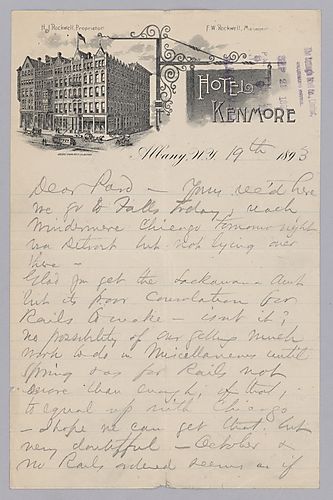 H.J. Rockwell, Proprietor.
F.W. Rockwell, Manager.
HOTEL
KENMORE
Albany, N.Y. 19th 1893
Dear Pard — Yours rec'd here
we go to Falls today, reach
Windermere Chicago tomorrow night
via Detroit but not lying over
there —
Glad you get the Lackawanna
but its poor Consolation for
Rails to make — isn't it?
No possibility of our getting much
work to do in Miscellaneous until
Spring & as for Rails not
more than enough, if that,
to equal up with Chicago
— I hope we can get that but
very doubtful — October &
no Rails ordered seems as if